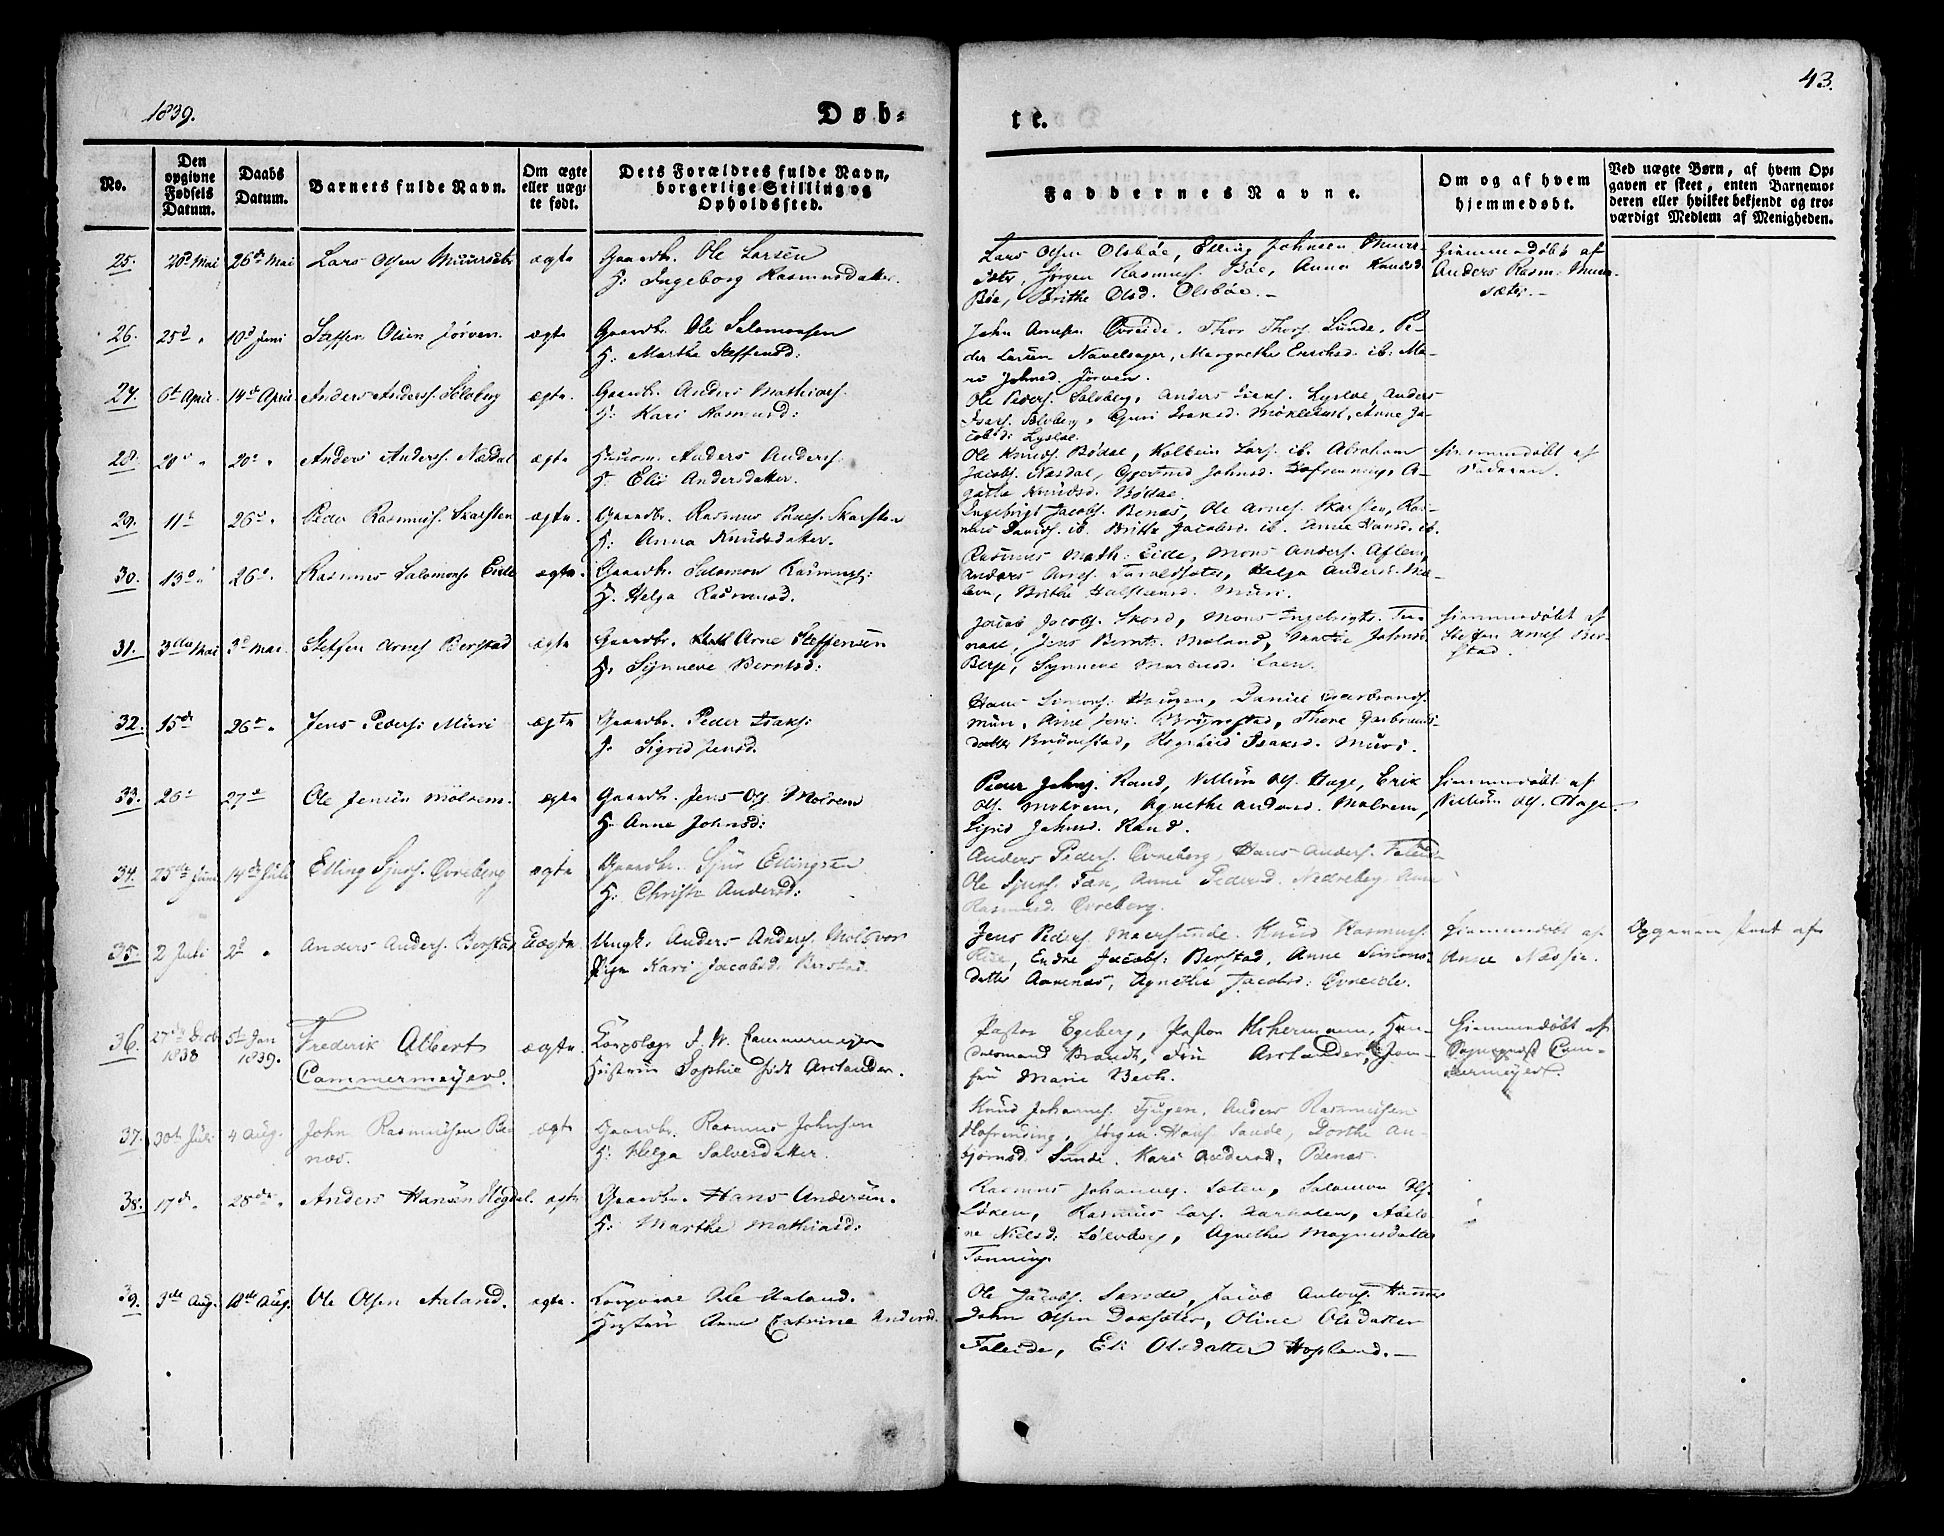 1839.
Døb-
te.
43.
No.
Den opgivne Fødsels Datum.
Daabs Datum.
Barnets fulde Navn.
Om ægte eller uægte født.
Dets Forældres fulde Navn, borgerlige Stilling og Opholdssted.
Faddernes Navne.
Om og af hvem hjemmedøbt.
Ved uægte Børn, af hvem Opgaven er skeet, enten Barnemoderen eller hvilket bekjendt og troværdigt Medlem af Menigheden.
25. 20d Mai 26de Mai Lars Olsen ægte Gaardbr. Ole Larsen
H: Ingeborg Rasmusdatter.
Lars Olsen Olsbøe, Elling Johnsen
Jørgen Rasmus. Bøe, Anna Knudsd.
Bøe, Brithe Olsd. Olsbøe.
Hiemmedøbt af
Anders Rasm. Muur-
sæter.
26. 25d " 10d Juni Steffen Olsen Jørven. ægte Gaardbr. Ole Salomonsen
H: Marthe Steffensd:
John Arnesen Thor Thors. Lunde, Pe-
der Larsen Navelsager, Margrethe ib: Ma-
ri Johnsd. Jørven.
27. 6te April 14de April Anders Anders. Solberg ægte Gaardbr. Anders Mathias.
H: Kari Rasmusd:
Ole Peders. Solberg, Anders Isaks. Lysloe, Anders
Solberg, Guri Isaksd. Anne Ja-
cobsd: Lysloe.
28. 20de " 20de Anders Anders. Næsdal ægte Huusm. Anders Anders.
H: Elis Andersdatter.
Ole Knuds. Bødal, Kolbein Lars. ib. Abraham
Jacobs. Næsdal, Gjertrud Johnsd. A-
gathe Knudsd. Bødal.
Hiemmedøbt af
Faderen.
29. 11te 26de " Peder Rasmus. Skarsten ægte. Gaardbr. Rasmus Peders. Skarsten
H: Anna Knudsdatter.
Ingebrigt Jacobs. Benæs, Ole Arnes. Skarsten, Ras-
mus Davids. ib. Brithe Jacobsd. ib. Anne Hansd. ib.
30. 13de " 26de Rasmus Salomons. Eide ægte. Gaardbr. Salomon Rasmus:
H. Helga Rasmusd.
Rasmus Math: Eide, Mons Anders. Aflem,
Anders Arnes. Helga Andersd. Me-
lem, Brithe Halsteensd. Muri.
31. 3die Mai 3d Mai Steffen Arnes Berstad ægte Gaardbr. Arne Steffensen
H. Synneve Berntsd:
Jacob Jacobs. Skord, Mons Ingebrigts. Tu-
Jens Bernts. Moland, Marthe Johnsd.
Berge, Synneve Loen.
Hiemmedøbt af
Steffen Arnes Ber-
stad.
32. 15de 26de " Jens Peders: Muri ægte Gaardbr. Peder Isaks:
H. Sigrid Jensd.
Hans Simons. Haugen, Daniel Gerbrands.
Muri, Arne Jens. Bruvestad, Thore Gerbrands-
datter Isaksd. Muri.
33. 26de 27de Ole Jensen Molvem. ægte Gaardbr. Jens Ols. Molvem
H. Anne Johnsd:
Peder Johns. Rand, Villum Ols. Hage, Erik
Ols. Molvem, Agnethe Andersd. Molvem,
Sigrid Johnsd. Rand.
Hiemmedøbt af
Villum Ols. Hage.
34. 25de Juni 14de Juli Elling Sjurs. Øvreberg ægte Gaardbr. Sjur Ellingsen
H. Christi Andersd:
Anders Peders. Øvreberg, Hans Anders.
Ole Sjurs. Anne Pedersd. Nedreberg, Anne
Rasmusd. Øvreberg.
35. 2 Juli 2d " Anders Anders. Berstad Uægte Ungk. Anders Anders.
Pige Kari Jacobsd. Berstad.
Jens Peders. Knud Rasmus.
Endre Jacobs: Berstad, Anne Simons-
datter Aarenæs, Agnethe Jacobsd: Øvreeide.
Hiemmedøbt af
Anne
Opgaven skeet af
36. 27de Decb 1838 5te Jan 1839. Frederik Albert
Cammermeyer.
ægte Korpslæge F. W. Cammermeyer
Hustrue Sophie født Arctander.
Pastor Egeberg, Pastor Han-
delsmand Brandt, Fru Arctander, Jom-
fru Marie Bech.
Hiemmedøbt af
Sognepræst Cam-
mermeyer.
37. 30te Juli 4 Aug. John Rasmussen Be-
næs.
ægte Gaardbr. Rasmus Johnsen
H: Helga Salvesdatter.
Knud Johannes. Tjugen, Anders Rasmussen
Jørgen Hans. Sunde, Dorthe An-
bjørnsd. Sunde, Kari Andersd. Benæs.
38. 17de " 28de " Anders Hansen Hogdal. ægte Gaardbr. Hans Andersen.
H: Marthe Mathiasd:
Rasmus Johannes. Sæten, Salomon Ols.
Løken, Rasmus Lars. Aaele-
ne Nielsd: Agnethe Magnesdatter
Tonning.
39. 3die Aug. Aug. Ole Olsen Aaland. ægte. Ole Aaland.
Hustrue Anne Catrine Andersd.
Ole Jacobs. Jacob Anders.
John Olsen Oline Olsdatter
Faleide, Eli Olsdatter Hopland.